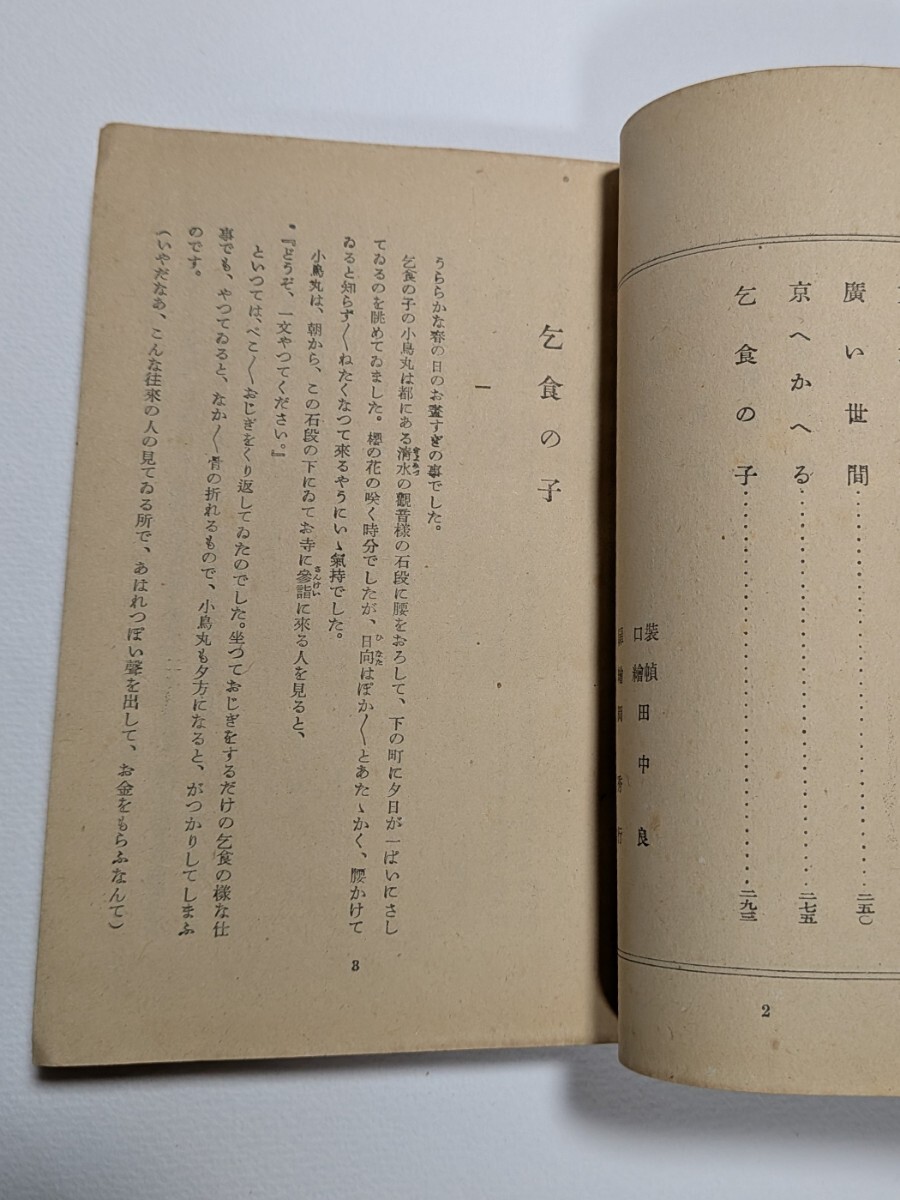 廣い世間…………二五〇
京へかへる…………二七五
乞食の子…………二九三
装幀
口繪 田中良
2
乞食の子
一
うららかな春の日のお晝すぎの事でした。
乞食の子の小鳥丸は都にある清水の觀音樣の石段に腰をおろして、下の町に夕日が一ぱいにさし
てゐるのを眺めてゐました。櫻の花の咲く時分でしたが、日向はぽか〱とあたゝかく、腰かけて
ゐると知らず〱ねたくなつて來るやうにいゝ氣持でした。
小鳥丸は、朝から、この石段の下にゐてお寺に參詣に來る人を見ると、
『どうぞ、一文やつてください。』
といつては、ぺこ〱おじぎをくり返してゐたのでした。坐つておじぎをするだけの乞食の樣な仕
事でも、やつてゐると、なか〱骨の折れるもので、小鳥丸も夕方になると、がつかりしてしまふ
のです。
（いやだなあ、こんな往來の人の見てゐる所で、あはれつぽい聲を出して、お金をもらふなんて）
3